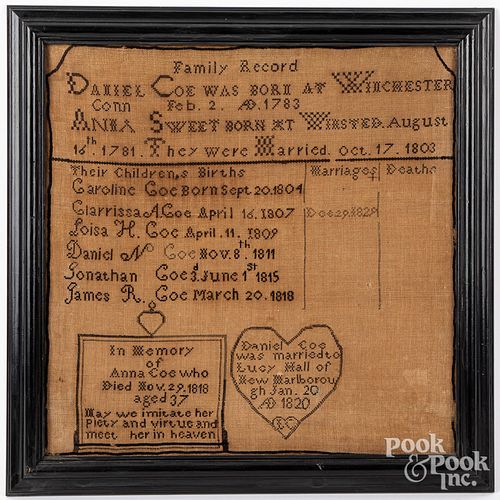 Family Record
DANIEL COE WAS BORN AT WINCHESTER
Conn Feb. 2. AD. 1783
ANNA SWEET BORN AT WINSTED. August
16th. 1781. They Were Married. Oct. 17. 1803
Their Children,s Births Marriages Deaths
Caroline Coe Born Sept 20. 1804
Clarrissa A. Coe April 16. 1807 Dec 29. 1829
Loisa H. Coe April. 11. 1809
Daniel N Coe Nov. 8th. 1811
Jonathan Coe 3d. June 1st 1815
James R. Coe March 20. 1818
In Memory
of
Anna Coe who
Died Nov. 29. 1818
aged 37
May we imitate her
Piety and virtue and
meet her in heaven
Daniel Coe
was married to
Lucy Hall of
New Marlborou
gh Jan. 20
AD 1820
Pook
& Pook
Inc.